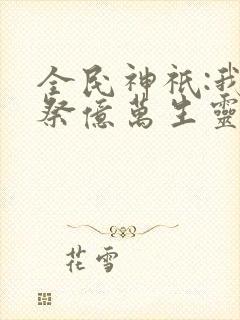 全民神祇:我
祭億萬生靈
花雪